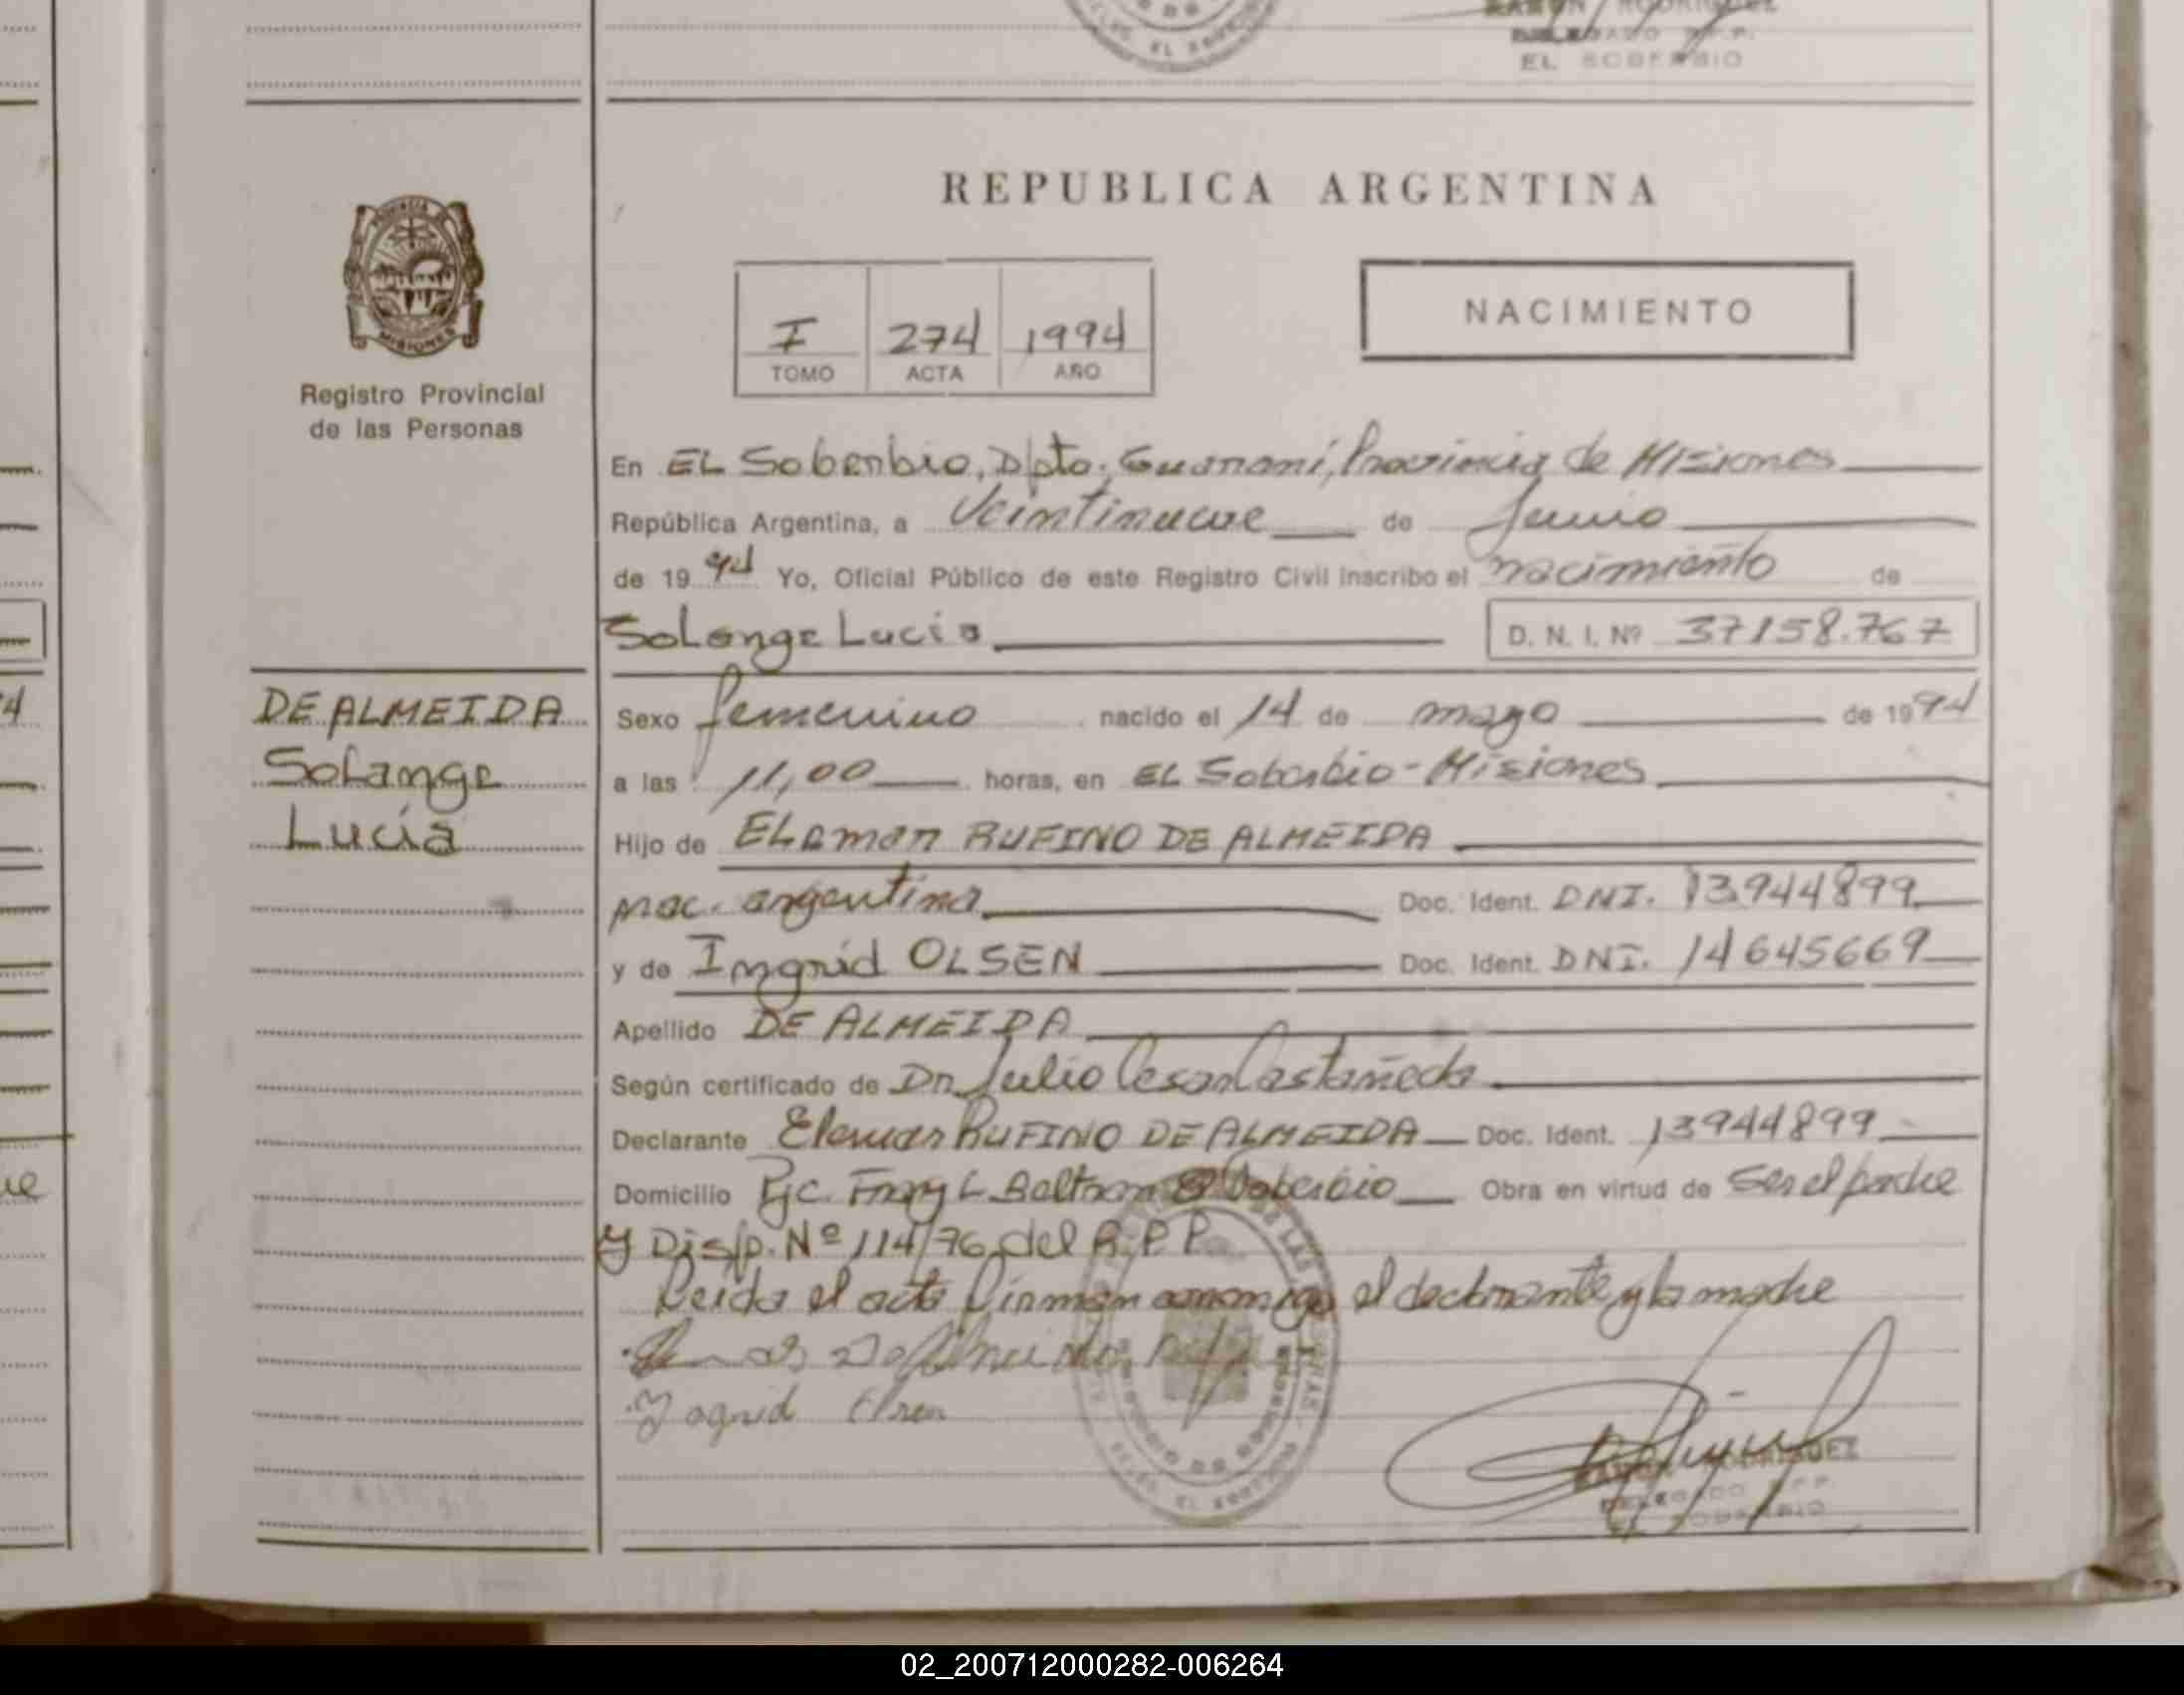 EL SOBERBIO
RAMON RODRIGUEZ
DELEGADO R.P.P.
EL SOBERBIO
REPUBLICA ARGENTINA
PROVINCIA DE
MISIONES
Registro Provincial
de las Personas
I 274 1994
TOMO ACTA AÑO
NACIMIENTO
En EL Soberbio, Dpto. Guaraní, Provincia de Misiones
República Argentina, a Veintinueve de Junio
de 1994 Yo, Oficial Público de este Registro Civil inscribo el nacimiento de
Solange Lucia D. N. I. Nº 37158.767
DE ALMEIDA
Solange
Lucía
Sexo femenino nacido el 14 de mayo de 1994
a las 11,00 horas, en EL Soberbio - Misiones
Hijo de ELemar RUFINO DE ALMEIDA
nac. argentina Doc. Ident. DNI. 13944899
y de Ingrid OLSEN Doc. Ident. DNI. 14645669
Apellido DE ALMEIDA
Según certificado de Dr. Julio Cesar Castañeda
Declarante Elemar RUFINO DE ALMEIDA Doc. Ident. 13944899
Domicilio Pje. Fray L. Beltran El Soberbio Obra en virtud de Ser el padre
y Disp. Nº 114/76 del R.P.P.
Leida el acta firman conmigo el declarante y la madre
Ingrid Olsen
RAMON RODRIGUEZ
DELEGADO R.P.P.
EL SOBERBIO
02_200712000282-006264